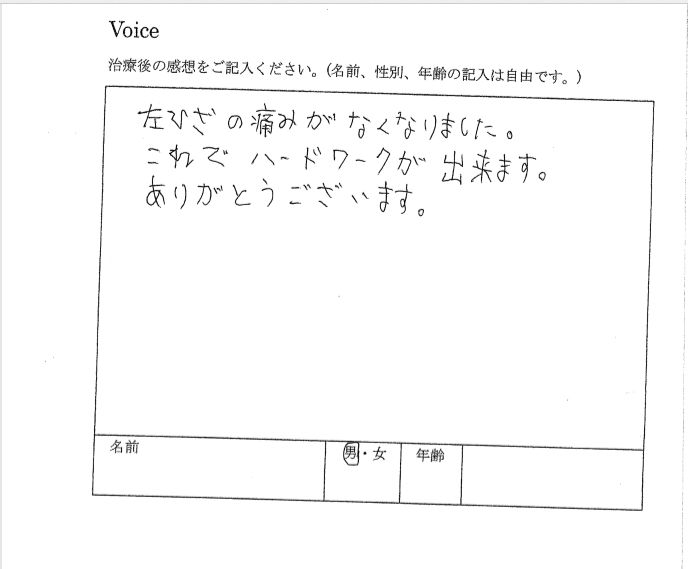 Voice
治療後の感想をご記入ください。(名前、性別、年齢の記入は自由です。)
左ひざの痛みがなくなりました。
これでハードワークが出来ます。
ありがとうございます。
名前 男・女 年齢